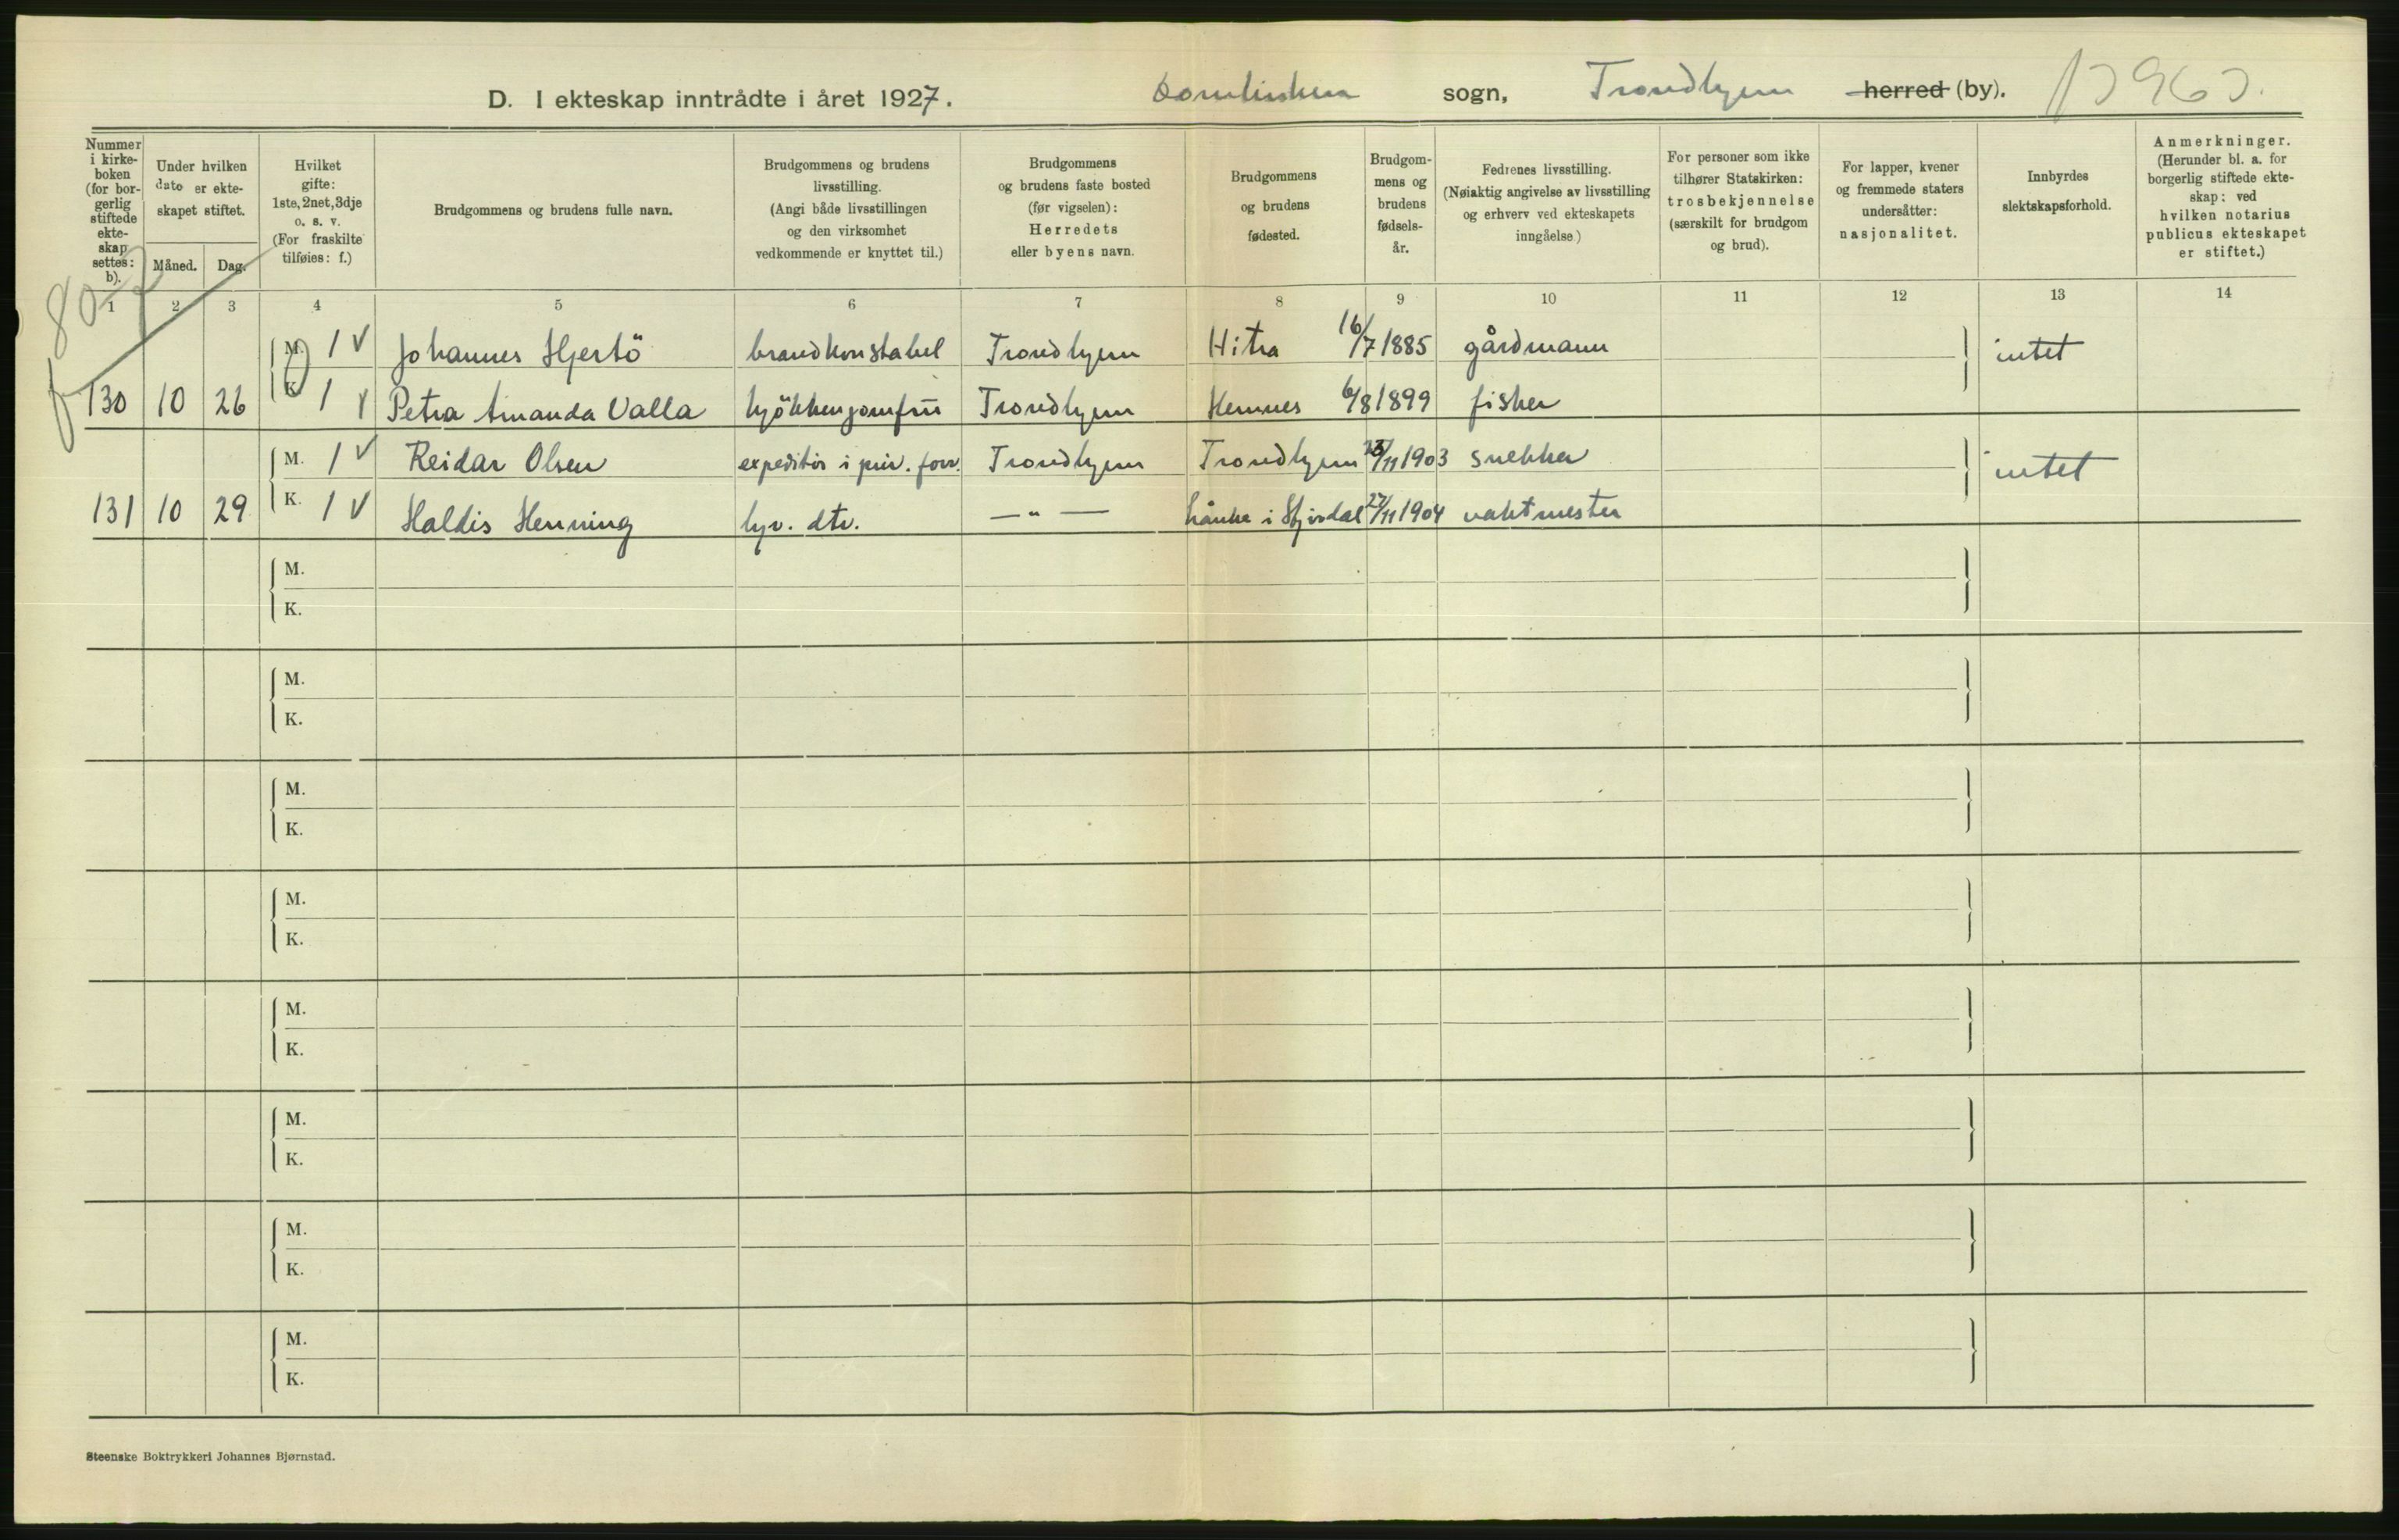 D. I ekteskap inntrådte i året 1927. Domkirkens sogn, Trondhjem herred (by).
Nummer i kirkeboken (for borgerlig stiftede ekteskap settes: b).
Under hvilken dato er ekteskapet stiftet.
Måned. Dag.
Hvilket gifte: 1ste, 2net, 3dje o. s. v. (For fraskilte tilføies: f.)
Brudgommens og brudens fulle navn.
Brudgommens og brudens livsstilling. (Angi både livsstillingen og den virksomhet vedkommende er knyttet til.)
Brudgommens og brudens faste bosted (før vigselen): Herredets eller byens navn.
Brudgommens og brudens fødested.
Brudgommens og brudens fødselsår.
Fedrenes livsstilling. (Nøiaktig angivelse av livsstilling og erhverv ved ekteskapets inngåelse)
For personer som ikke tilhører Statskirken: trosbekjennelse (særskilt for brudgom og brud).
For lapper, kvener og fremmede staters undersåtter: nasjonalitet.
Innbyrdes slektskapsforhold.
Anmerkninger. (Herunder bl. a. for borgerlig stiftede ekteskap: ved hvilken notarius publicus ekteskapet er stiftet.)
1 2 3 4 5 6 7 8 9 10 11 12 13 14
M. 1 Johannes Hjertö brandkonstabel Trondhjem Hitra 16/7 1885 gårdmann intet
130 10 26 K. 1 Petra Amanda Valla kjökkenjomfru Trondhjem Hemnes 6/8 1899 fisker
M. 1 Reidar Olsen expeditör i priv. forr. Trondhjem Trondhjem /11 1903 snekker intet
131 10 29 K. 1 Haldis Henning hjv. dtr. —"— Lånke i Stjördal 27/11 1904 vaktmester
M.
K.
M.
K.
M.
K.
M.
K.
M.
K.
M.
K.
M.
K.
M.
K.
Steenske Boktrykkeri Johannes Bjørnstad.